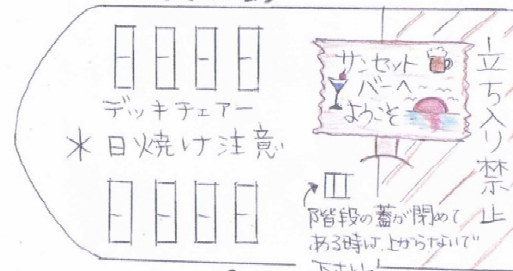 デッキチェアー
* 日焼け注意
サンセット
バーへ
ようこそ
立ち入り禁止
階段の蓋が閉めて
ある時は、上がらないで
下さい!